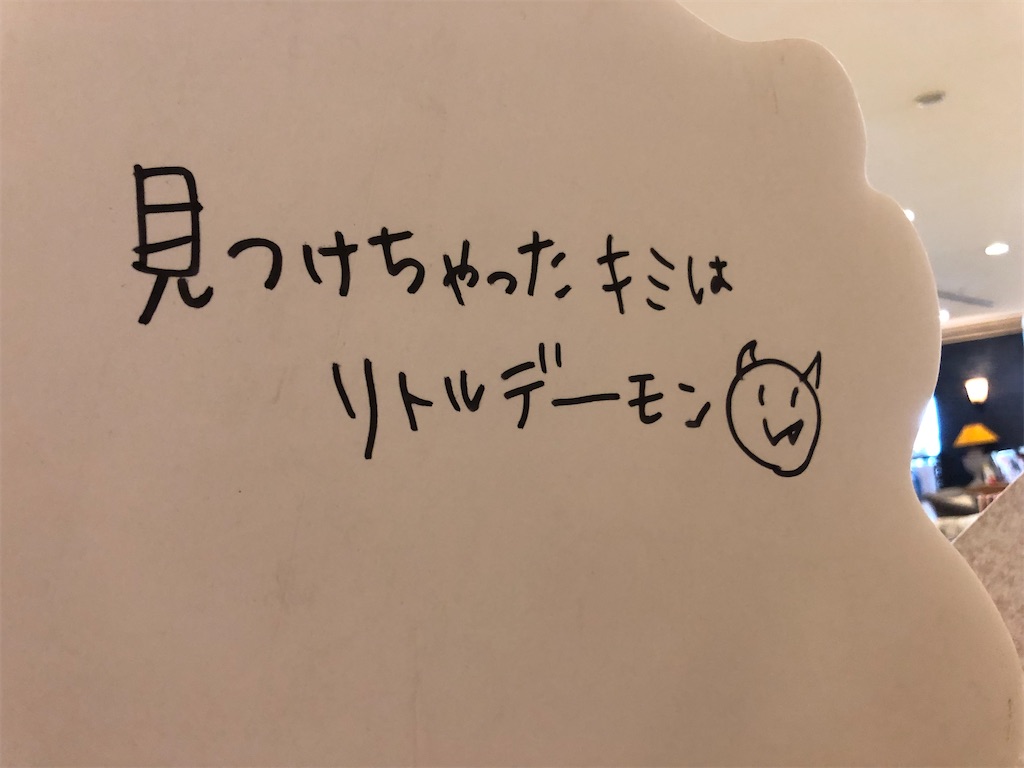 見つけちゃった キミは
リトルデーモン